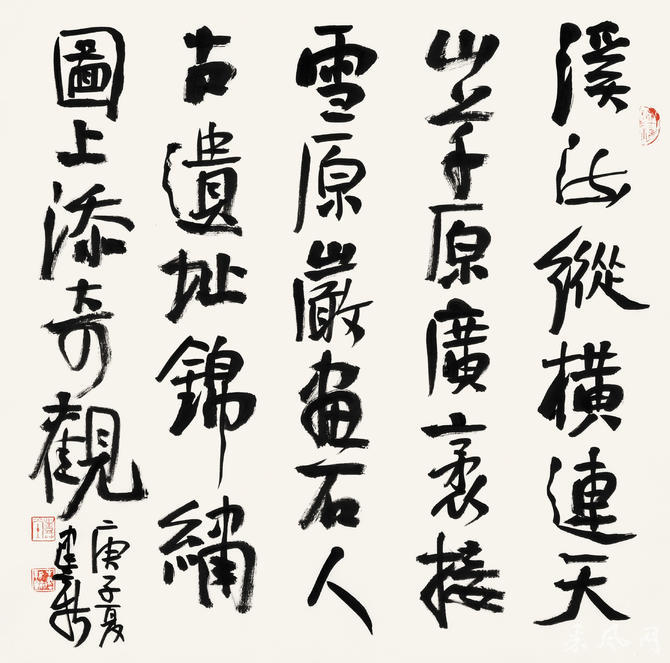 溪縱橫連天
山草原廣袤接
雪原巖畫石人
古遺址錦繡
圖上添奇觀
庚子夏
建新
采风网